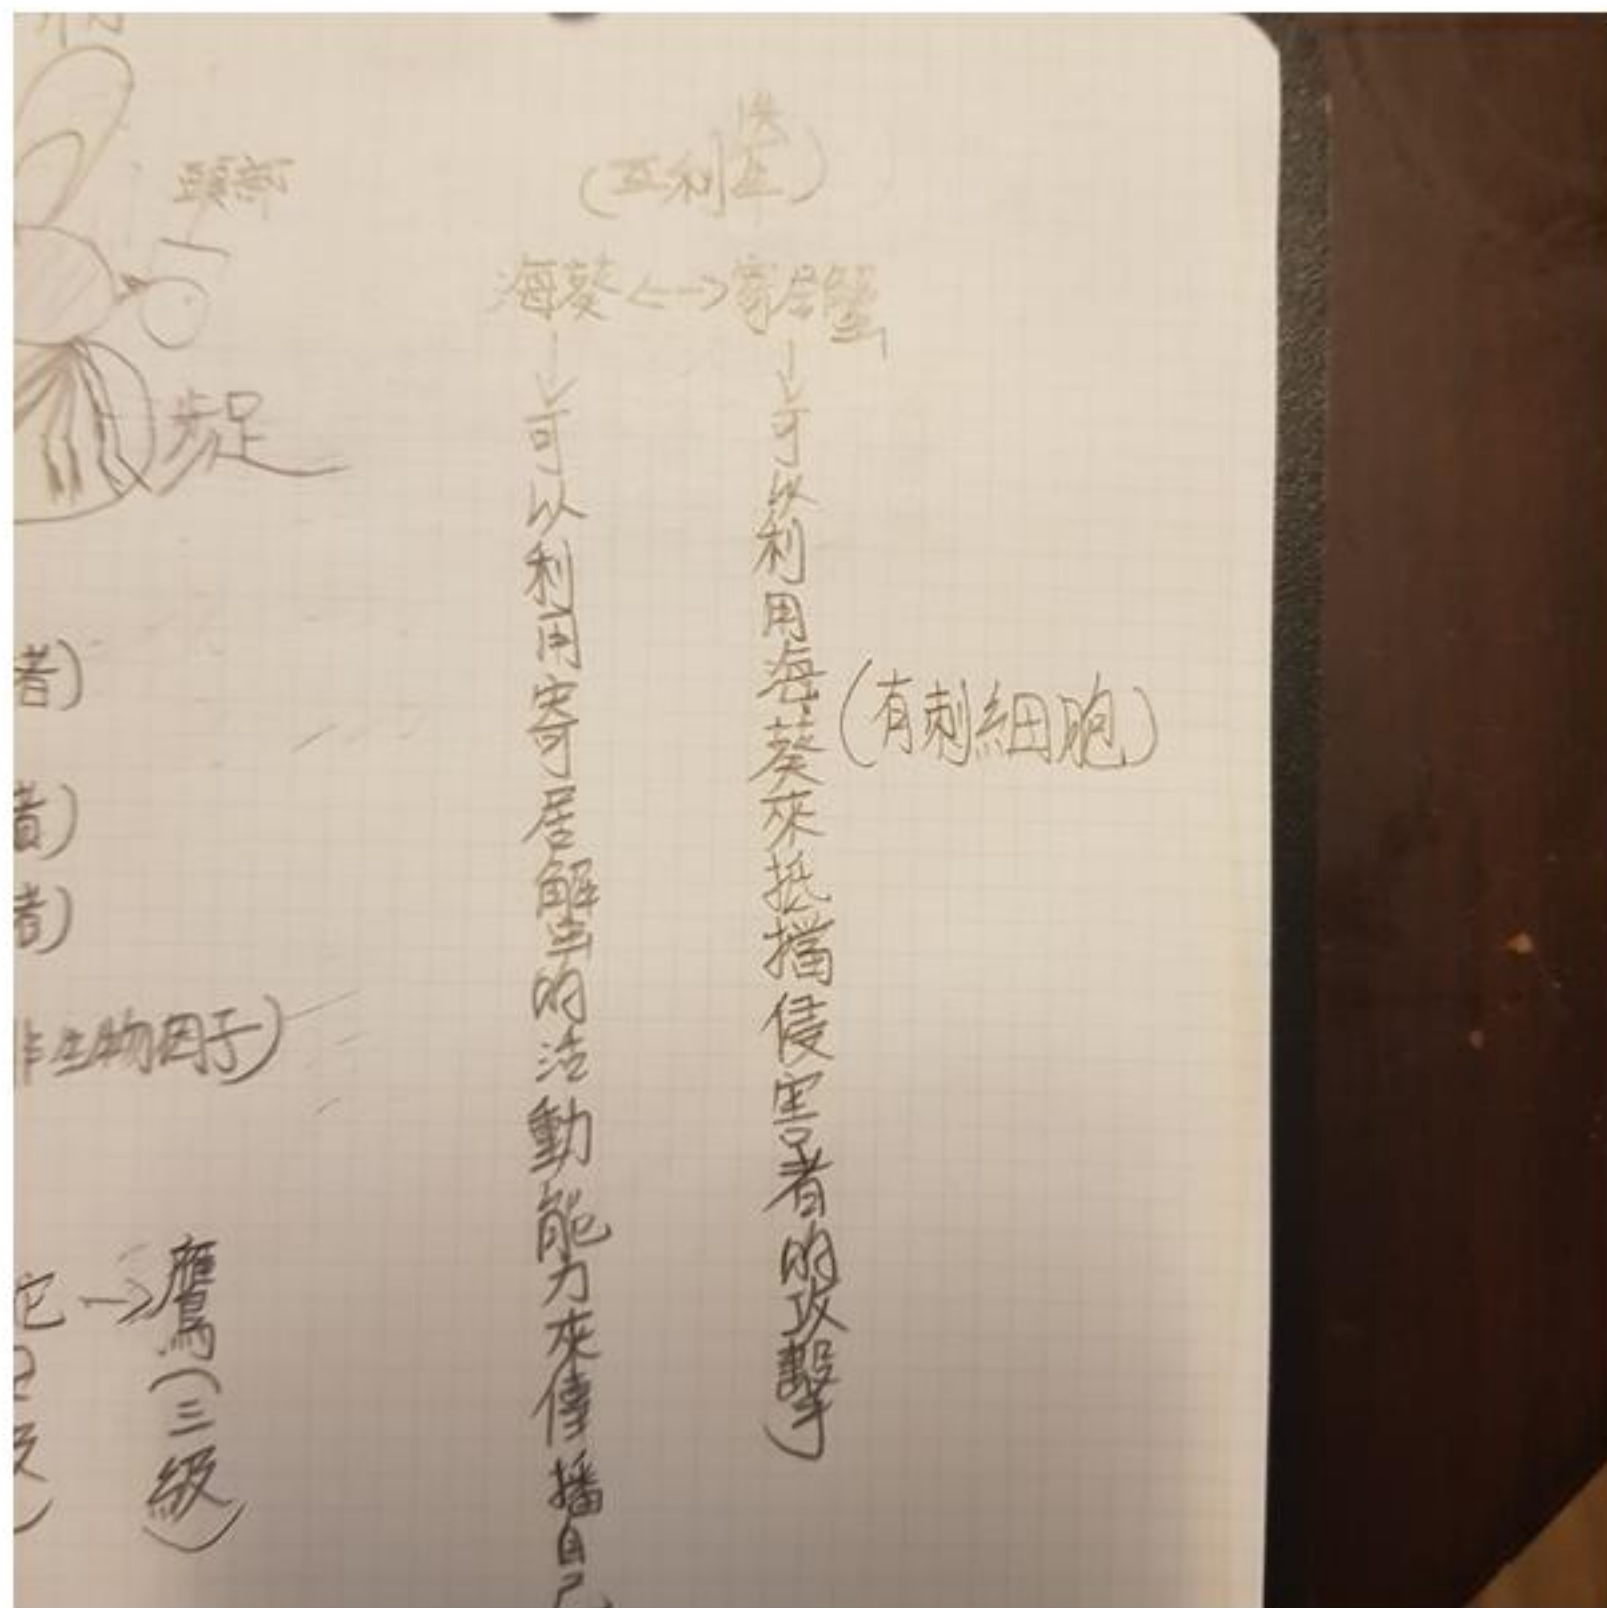 頭部
步足
者)
者)
者)
非生物因子)
→鷹(三級)
(互利共生)
海葵<-->寄居蟹
可以利用寄居蟹的活動能力來傳播自己
可以利用海葵來抵擋侵害者的攻擊
(有刺細胞)